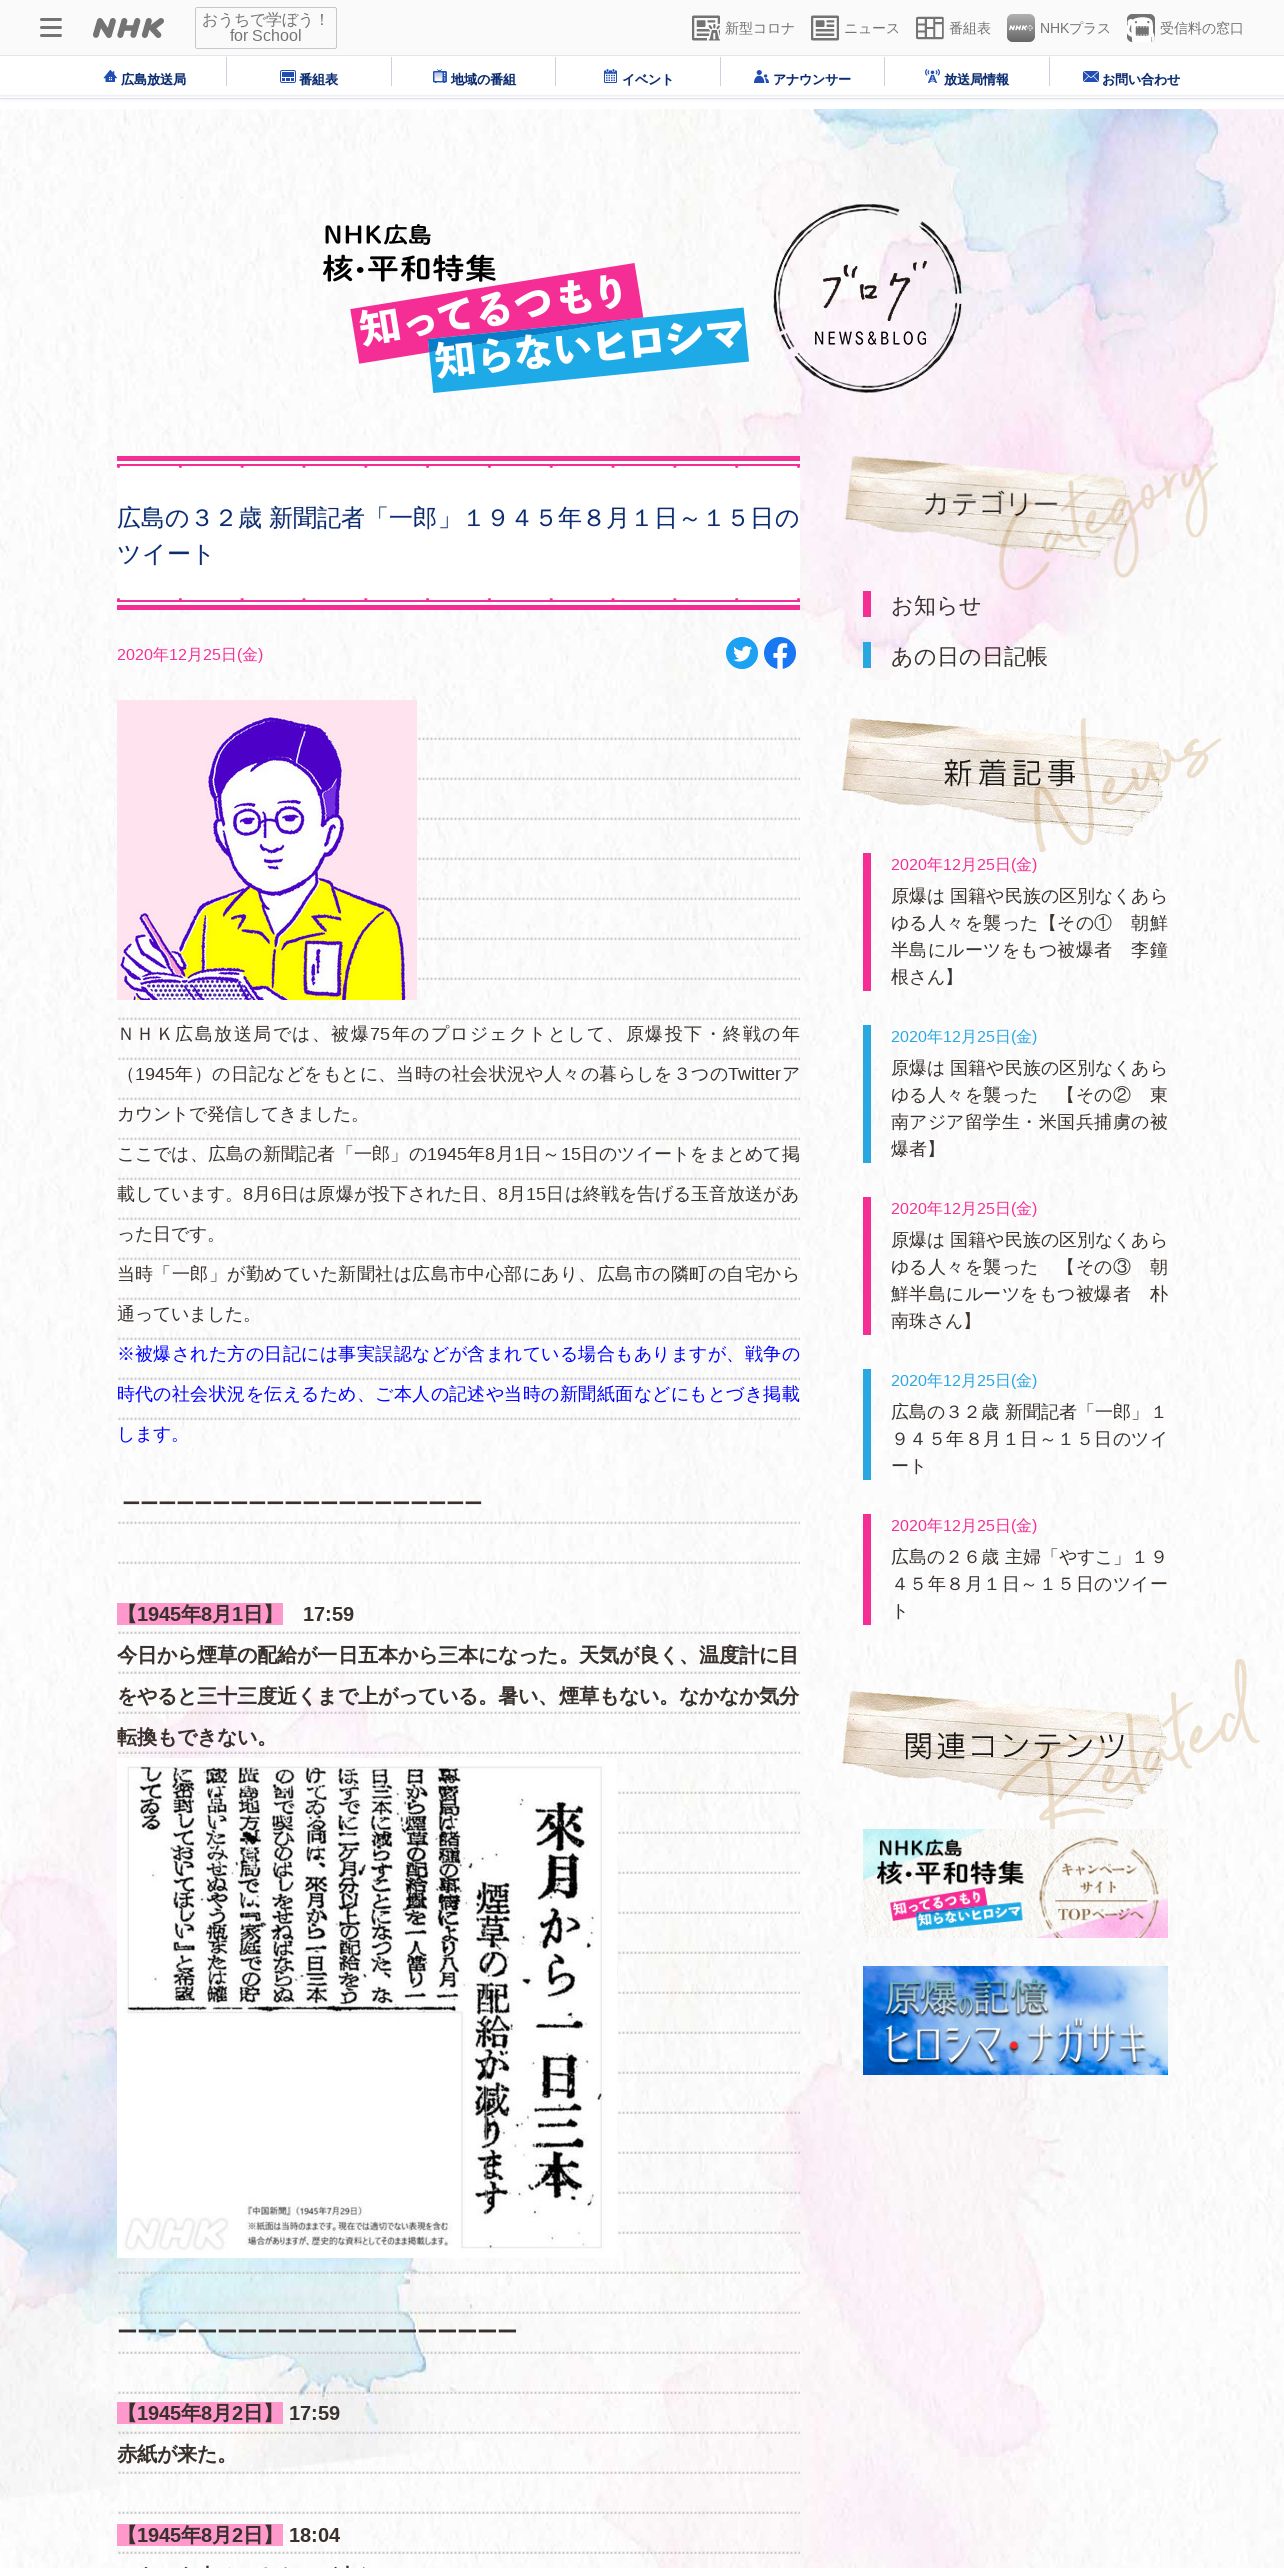 NHK
おうちで学ぼう！
for School
新型コロナ
ニュース
番組表
NHKプラス
受信料の窓口
広島放送局
番組表
地域の番組
イベント
アナウンサー
放送局情報
お問い合わせ
NHK広島
核・平和特集
知ってるつもり
知らないヒロシマ
ブログ
NEWS&BLOG
広島の３２歳 新聞記者「一郎」１９４５年８月１日～１５日の
ツイート
2020年12月25日(金)
ＮＨＫ広島放送局では、被爆75年のプロジェクトとして、原爆投下・終戦の年
（1945年）の日記などをもとに、当時の社会状況や人々の暮らしを３つのTwitterア
カウントで発信してきました。
ここでは、広島の新聞記者「一郎」の1945年8月1日～15日のツイートをまとめて掲
載しています。8月6日は原爆が投下された日、8月15日は終戦を告げる玉音放送があ
った日です。
当時「一郎」が勤めていた新聞社は広島市中心部にあり、広島市の隣町の自宅から
通っていました。
※被爆された方の日記には事実誤認などが含まれている場合もありますが、戦争の
時代の社会状況を伝えるため、ご本人の記述や当時の新聞紙面などにもとづき掲載
します。
ーーーーーーーーーーーーーーーーーーーー
【1945年8月1日】　17:59
今日から煙草の配給が一日五本から三本になった。天気が良く、温度計に目
をやると三十三度近くまで上がっている。暑い、煙草もない。なかなか気分
転換もできない。
來月から一日三本
煙草の配給が減ります
日から煙草の配給量を一人當り一
日三本に減らすことになつた、な
ほすでに二ケ月分以上の配給をう
けてゐる向は、來月から一日三本
の割で喫ひのばしをせねばならぬ
に密封しておいてほしい』と希望
してゐる
『中国新聞』（1945年7月29日）
※紙面は当時のままです。現在では適切でない表現を含む
場合がありますが、歴史的な資料としてそのまま掲載します。
NHK
ーーーーーーーーーーーーーーーーーーーー
【1945年8月2日】 17:59
赤紙が来た。
【1945年8月2日】 18:04
カテゴリー
Category
お知らせ
あの日の日記帳
新着記事
News
2020年12月25日(金)
原爆は 国籍や民族の区別なくあら
ゆる人々を襲った【その①　朝鮮
半島にルーツをもつ被爆者　李鐘
根さん】
2020年12月25日(金)
原爆は 国籍や民族の区別なくあら
ゆる人々を襲った　【その②　東
南アジア留学生・米国兵捕虜の被
爆者】
2020年12月25日(金)
原爆は 国籍や民族の区別なくあら
ゆる人々を襲った　【その③　朝
鮮半島にルーツをもつ被爆者　朴
南珠さん】
2020年12月25日(金)
広島の３２歳 新聞記者「一郎」１
９４５年８月１日～１５日のツイ
ート
2020年12月25日(金)
広島の２６歳 主婦「やすこ」１９
４５年８月１日～１５日のツイー
ト
関連コンテンツ
Related
NHK広島
核・平和特集
知ってるつもり
知らないヒロシマ
キャンペーン
サイト
TOPページへ
原爆の記憶
ヒロシマ・ナガサキ